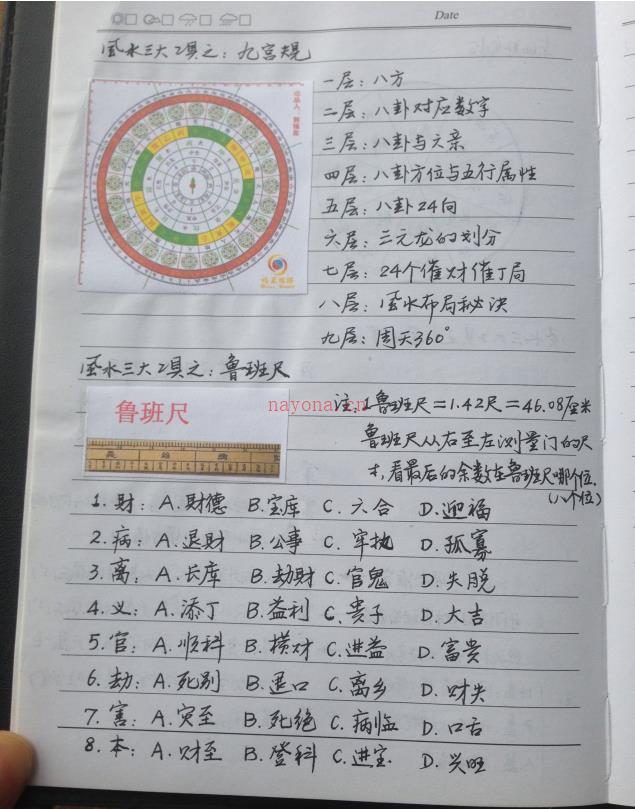 Date
风水三大工具之：九宫规
一层：八方
二层：八卦对应数字
三层：八卦与六亲
四层：八卦方位与五行属性
五层：八卦24向
六层：三元龙的划分
七层：24个催财催丁局
八层：风水布局秘决
九层：周天360°
风水三大工具之：鲁班尺
鲁班尺
nayona.cn
注：1鲁班尺＝1.42尺＝46.08厘米
鲁班尺从右至左测量门的尺
寸，看最后的余数在鲁班尺哪个位.
(八个位)
1. 财：A.财德 B.宝库 C.六合 D.迎福
2. 病：A.退财 B.公事 C.牢执 D.孤寡
3. 离：A.长库 B.劫财 C.官鬼 D.失脱
4. 义：A.添丁 B.益利 C.贵子 D.大吉
5. 官：A.顺科 B.横财 C.进益 D.富贵
6. 劫：A.死别 B.退口 C.离乡 D.财失
7. 害：A.灾至 B.死绝 C.病临 D.口舌
8. 本：A.财至 B.登科 C.进宝 D.兴旺